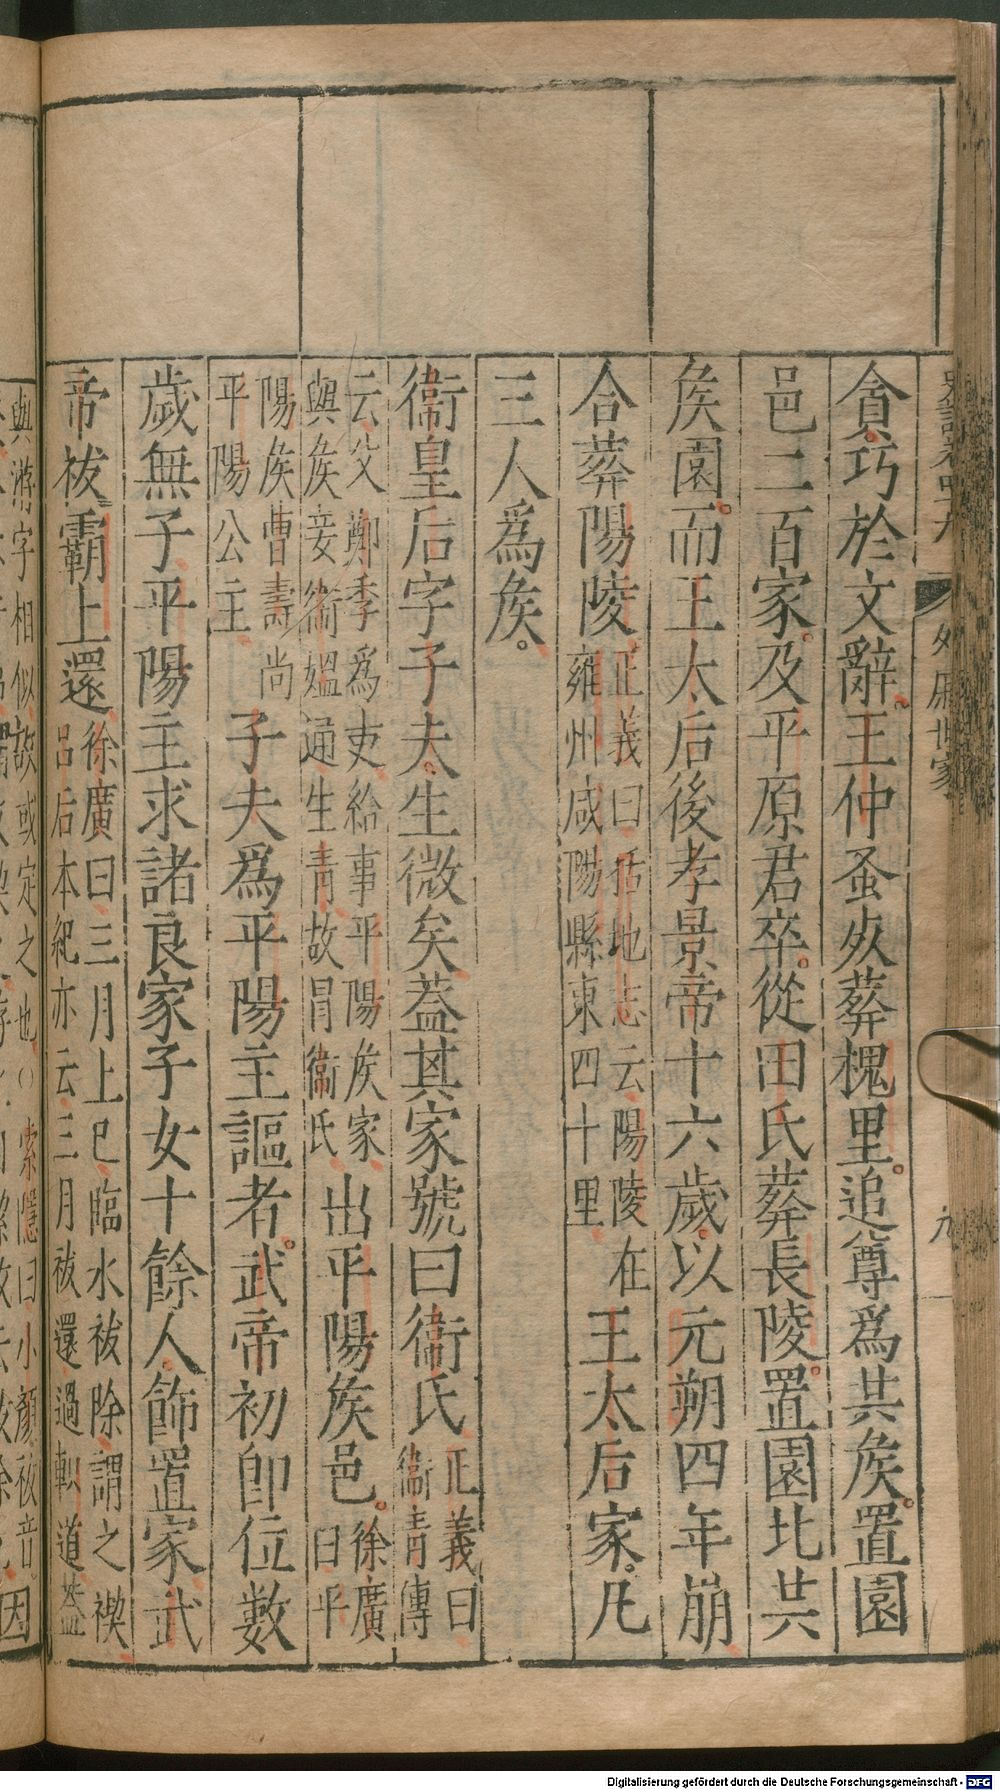 史記卷四十九 外戚世家 九
貪巧於文辭王仲蚤死葬槐里追尊爲共矦置園
邑二百家及平原君卒從田氏葬長陵置園比共
矦園而王太后後孝景帝十六歲以元朔四年崩
合葬陽陵正義曰括地志云陽陵在
雍州咸陽縣東四十里王太后家凡
三人爲矦
衞皇后字子夫生微矣葢其家號曰衞氏正義曰
衞青傳
云父鄭季爲吏給事平陽矦家
與矦妾衞媼通生青故冒衞氏出平陽矦邑徐廣
曰平
陽矦曹壽尚
平陽公主子夫爲平陽主謳者武帝初卽位數
歲無子平陽主求諸良家子女十餘人飾置家武
帝祓霸上還徐廣曰三月上巳臨水祓除謂之禊
呂后本紀亦云三月祓還過軹道葢
與游字相似故或定之也○索隱曰小顏祓音
因
Digitalisierung gefördert durch die Deutsche Forschungsgemeinschaft - DFG